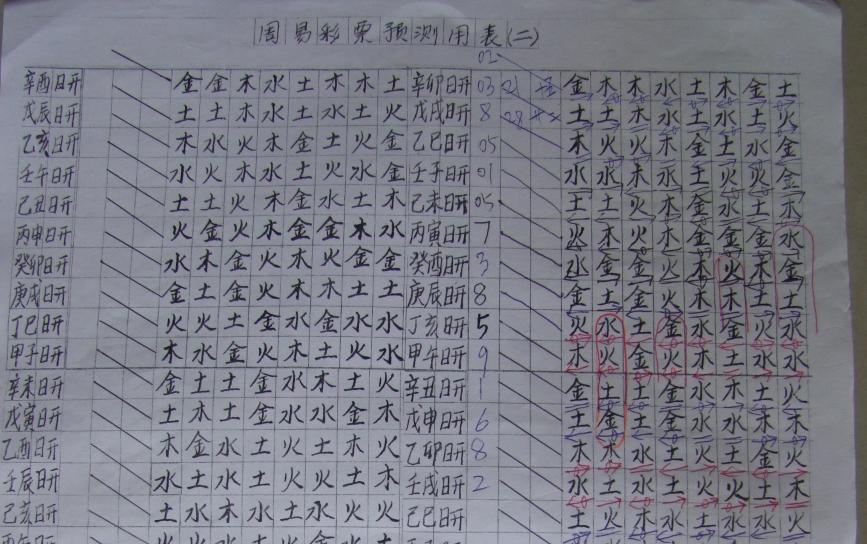 周易彩票预测用表(二)
02
辛酉日开 金金木水土木木土 辛卯日开 03 金木木水土木金土
戊辰日开 土土木水土水土火 戊戌日开 8 28 土土木水土水土火
乙亥日开 木水火木金土火金 乙巳日开 05 木火火木金土火金
壬午日开 水火木水土火水金 壬子日开 01 水水木水土火火金
己丑日开 土土火木金水土木 己未日开 05 土土火木金水土木
丙申日开 火金火木金金木水 丙寅日开 7 火木火木金金金水
癸卯日开 水木金火木火金金 癸酉日开 3 水金金火木火木金
庚戌日开 金土金火木木土土 庚辰日开 8 金土金火木木土土
丁巳日开 火火土金水金水水 丁亥日开 5 火水土金水金火水
甲子日开 木水金火木土火水 甲午日开 9 木火金火木土水水
辛未日开 金土土金水木土火 辛丑日开 1 金土土金水木土火
戊寅日开 土木土金水水金木 戊申日开 6 土金土金水水木木
乙酉日开 木金水土火土木火 乙卯日开 8 木木水土火土金火
壬辰日开 水土水土火火土木 壬戌日开 2 水土水土火火土木
己亥日开 土水木水土水火火 己巳日开 土火木水土水水火